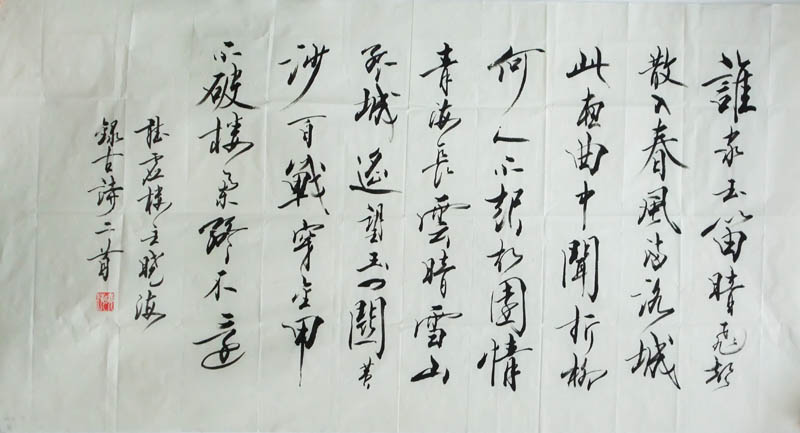 誰家玉笛晴飛聲
散入春風滿洛城
此夜曲中聞折柳
何人不起故園情
青海長雲晴雪山
孤城遙望玉门關黃
沙百戰穿金甲
不破楼蘭終不還
楼主晓海
録古詩二首